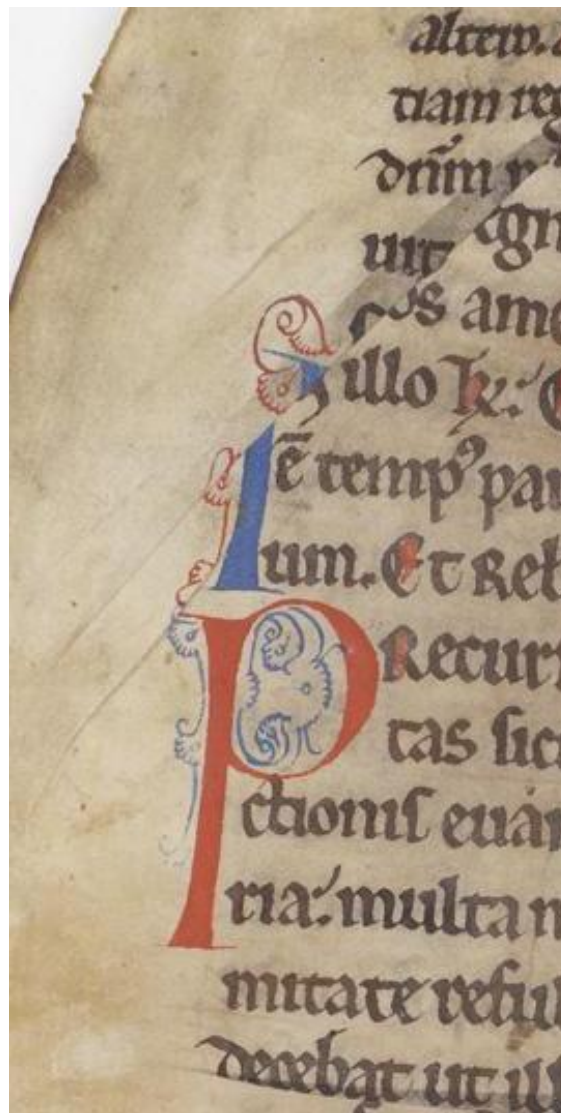 tiam reg
dnm
uit
s ame
illo
ē temp⁹ par
lum. Et Rel
P Recur
tas sic
ctionis euan
ria. multa n
mitate reful
decebat ut ill